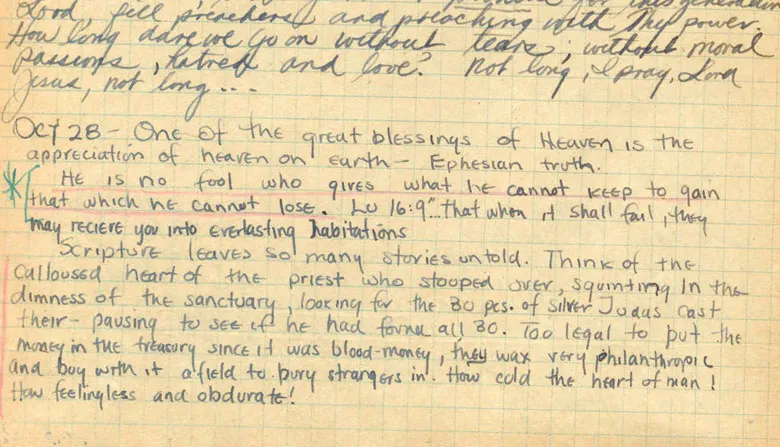 for this generation
Lord, fill preachers and preaching with Thy power.
How long dare we go on without tears, without moral
passions, hatred and love? Not long, I pray, Lord
Jesus, not long...
Oct 28 - One of the great blessings of Heaven is the
appreciation of heaven on earth - Ephesian truth.
He is no fool who gives what he cannot keep to gain
that which he cannot lose. Lu 16:9 "..that when it shall fail, they
may recieve you into everlasting habitations
Scripture leaves so many stories untold. Think of the
calloused heart of the priest who stooped over, squinting in the
dimness of the sanctuary, looking for the 30 pcs. of silver Judas cast
their - pausing to see if he had found all 30. Too legal to put the
money in the treasury since it was blood-money, they wax very philanthropic
and buy with it a field to bury strangers in. How cold the heart of man!
How feelingless and obdurate!